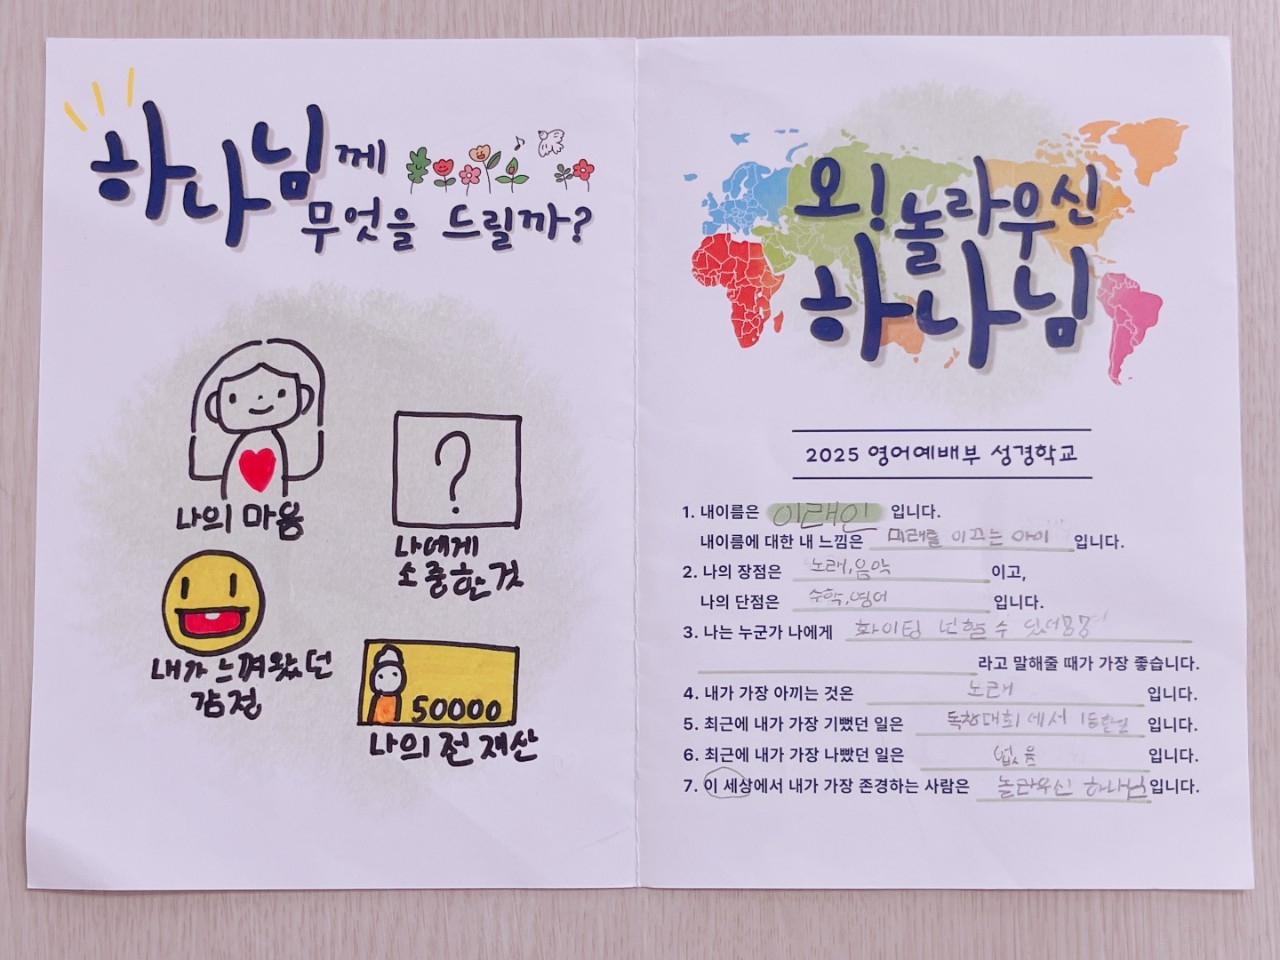 하나님께
무엇을 드릴까?
나의 마음
나에게
소중한것
내가 느껴왔던
감정
50000
나의 전 재산
오! 놀라우신
하나님
2025 영어예배부 성경학교
1. 내이름은 이래인 입니다.
내이름에 대한 내 느낌은 미래를 이끄는 아이 입니다.
2. 나의 장점은 노래,음악 이고,
나의 단점은 수학,영어 입니다.
3. 나는 누군가 나에게 화이팅 넌할 수 있어
라고 말해줄 때가 가장 좋습니다.
4. 내가 가장 아끼는 것은 노래 입니다.
5. 최근에 내가 가장 기뻤던 일은 독창대회에서 1등한일 입니다.
6. 최근에 내가 가장 나빴던 일은 없음 입니다.
7. 이 세상에서 내가 가장 존경하는 사람은 놀라우신 하나님 입니다.